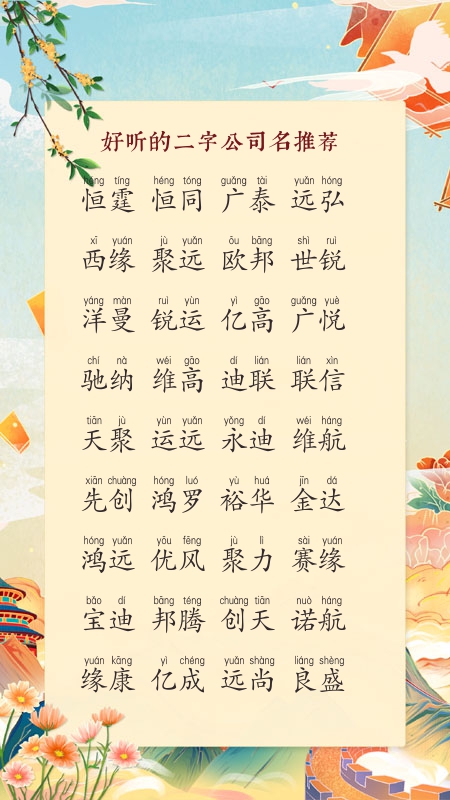 好听的二字公司名推荐
héng tíng héng tóng guǎng tài yuǎn hóng
恒霆 恒同 广泰 远弘
xī yuán jù yuǎn ōu bāng shì ruì
西缘 聚远 欧邦 世锐
yáng màn ruì yùn yì gāo guǎng yuè
洋曼 锐运 亿高 广悦
chí nà wéi gāo dí lián lián xìn
驰纳 维高 迪联 联信
tiān jù yùn yuǎn yǒng dí wéi háng
天聚 运远 永迪 维航
xiān chuàng hóng luó yù huá jīn dá
先创 鸿罗 裕华 金达
hóng yuǎn yōu fēng jù lì sài yuán
鸿远 优风 聚力 赛缘
bǎo dí bāng téng chuàng tiān nuò háng
宝迪 邦腾 创天 诺航
yuán kāng yì chéng yuǎn shàng liáng shèng
缘康 亿成 远尚 良盛